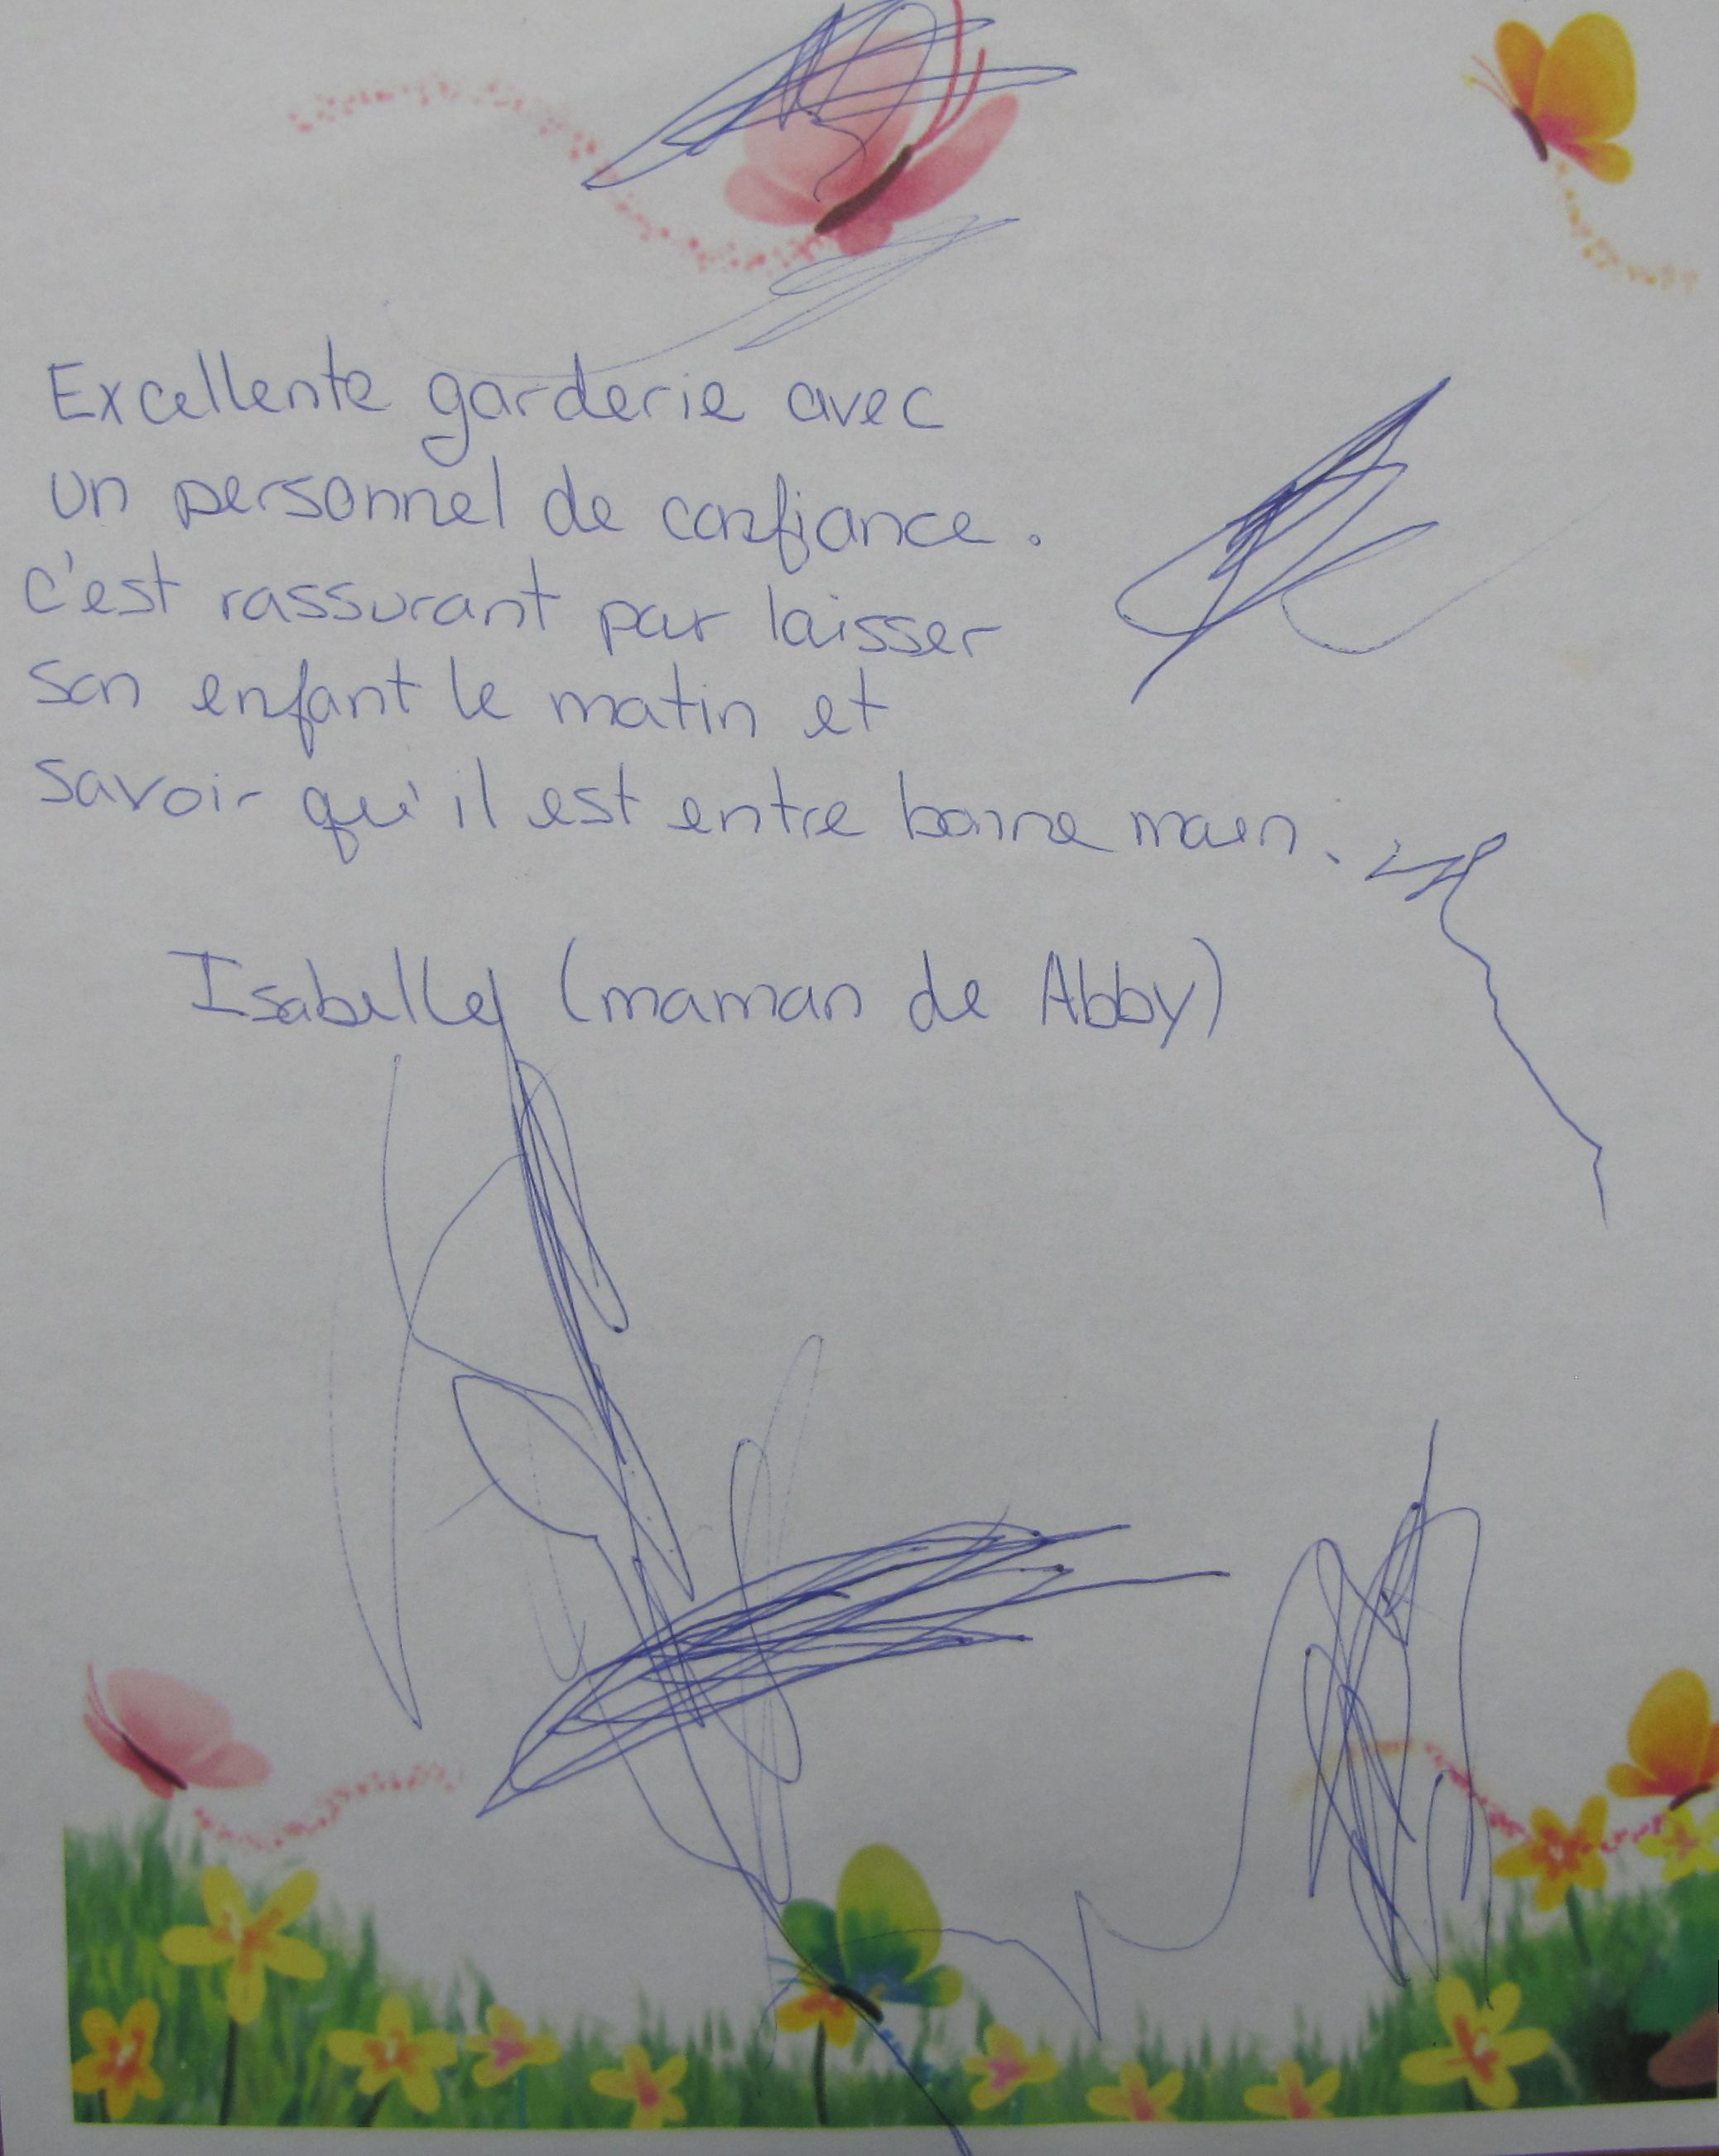 Excellente garderie avec
un personnel de confiance.
c'est rassurant par laisser
son enfant le matin et
savoir qu'il est entre bonne main.
Isabelle (maman de Abby)